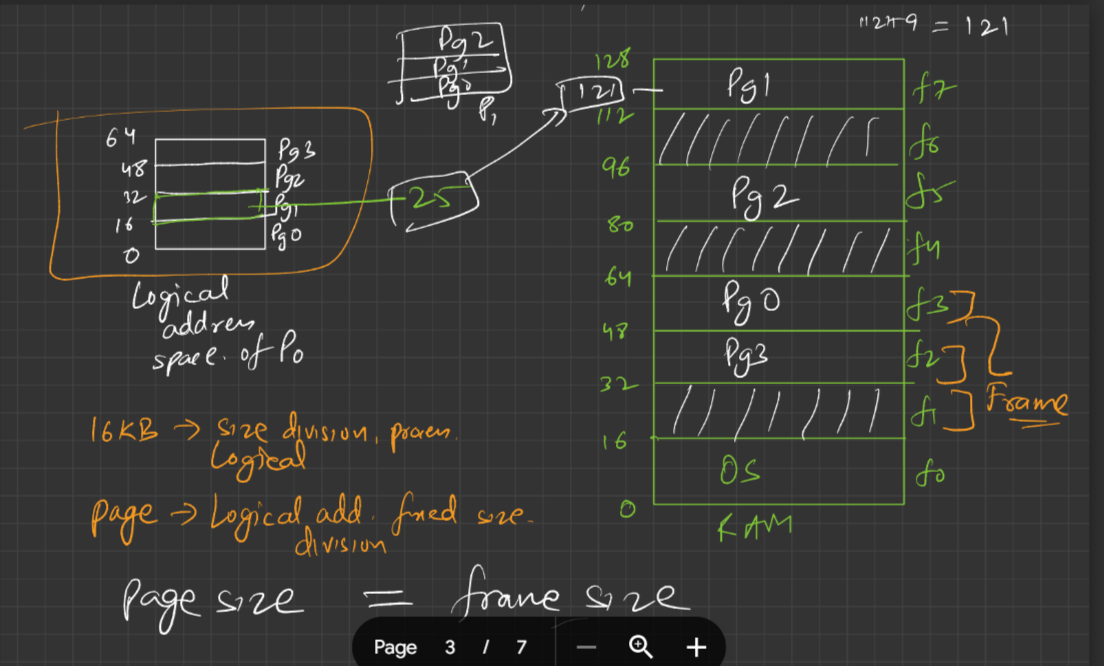 112+9 = 121
Pg2
Pg1
Pg0
P1
64
48
32
16
0
Pg3
Pg2
Pg1
Pg0
25
121
Logical
address
space of P0
128
112
96
80
64
48
32
16
0
Pg1
Pg2
Pg0
Pg3
OS
RAM
f7
f6
f5
f4
f3
f2
f1
f0
Frame
16KB → size division, process.
Logical
Page → Logical add. fixed size.
division
Page size = frame size
Page 3 / 7